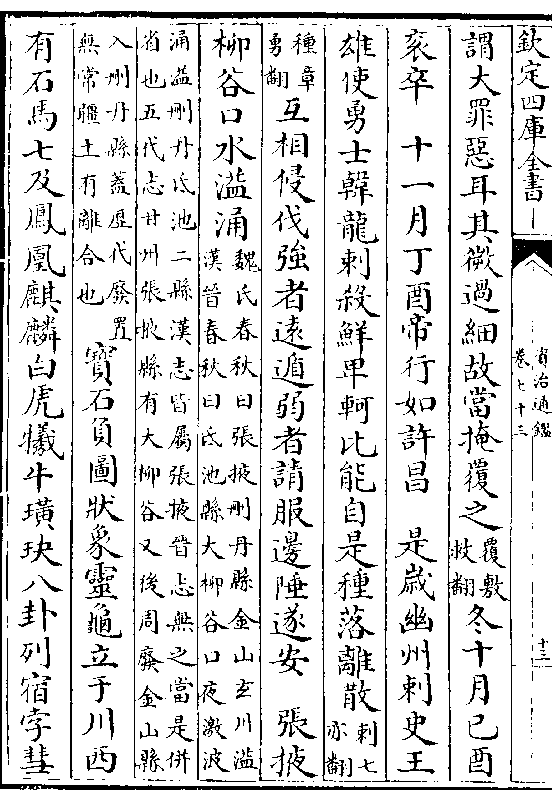 欽定四庫全書
資治通鑑
卷七十三
十三
謂大罪惡耳其微過細故當掩覆之覆敷救翻冬十月己酉
袤卒 十一月丁酉帝行如許昌 是歲幽州刺史王
雄使勇士韓龍刺殺鮮卑軻比能自是種落離散刺七亦翻
種章勇翻互相侵伐強者遠遁弱者請服邊陲遂安 張掖
柳谷口水溢涌魏氏春秋曰張掖刪丹縣金山玄川溢漢晉春秋曰氐池縣大柳谷口夜激波
涌溢刪丹氐池二縣漢志皆屬張掖晉志無之當是併省也五代志甘州張掖縣有大柳谷又後周廢金山縣
入刪丹縣蓋歷代廢置無常疆土有離合也寶石負圖狀象靈龜立于川西
有石馬七及鳳凰麒麟白虎犧牛璜玦八卦列宿孛彗